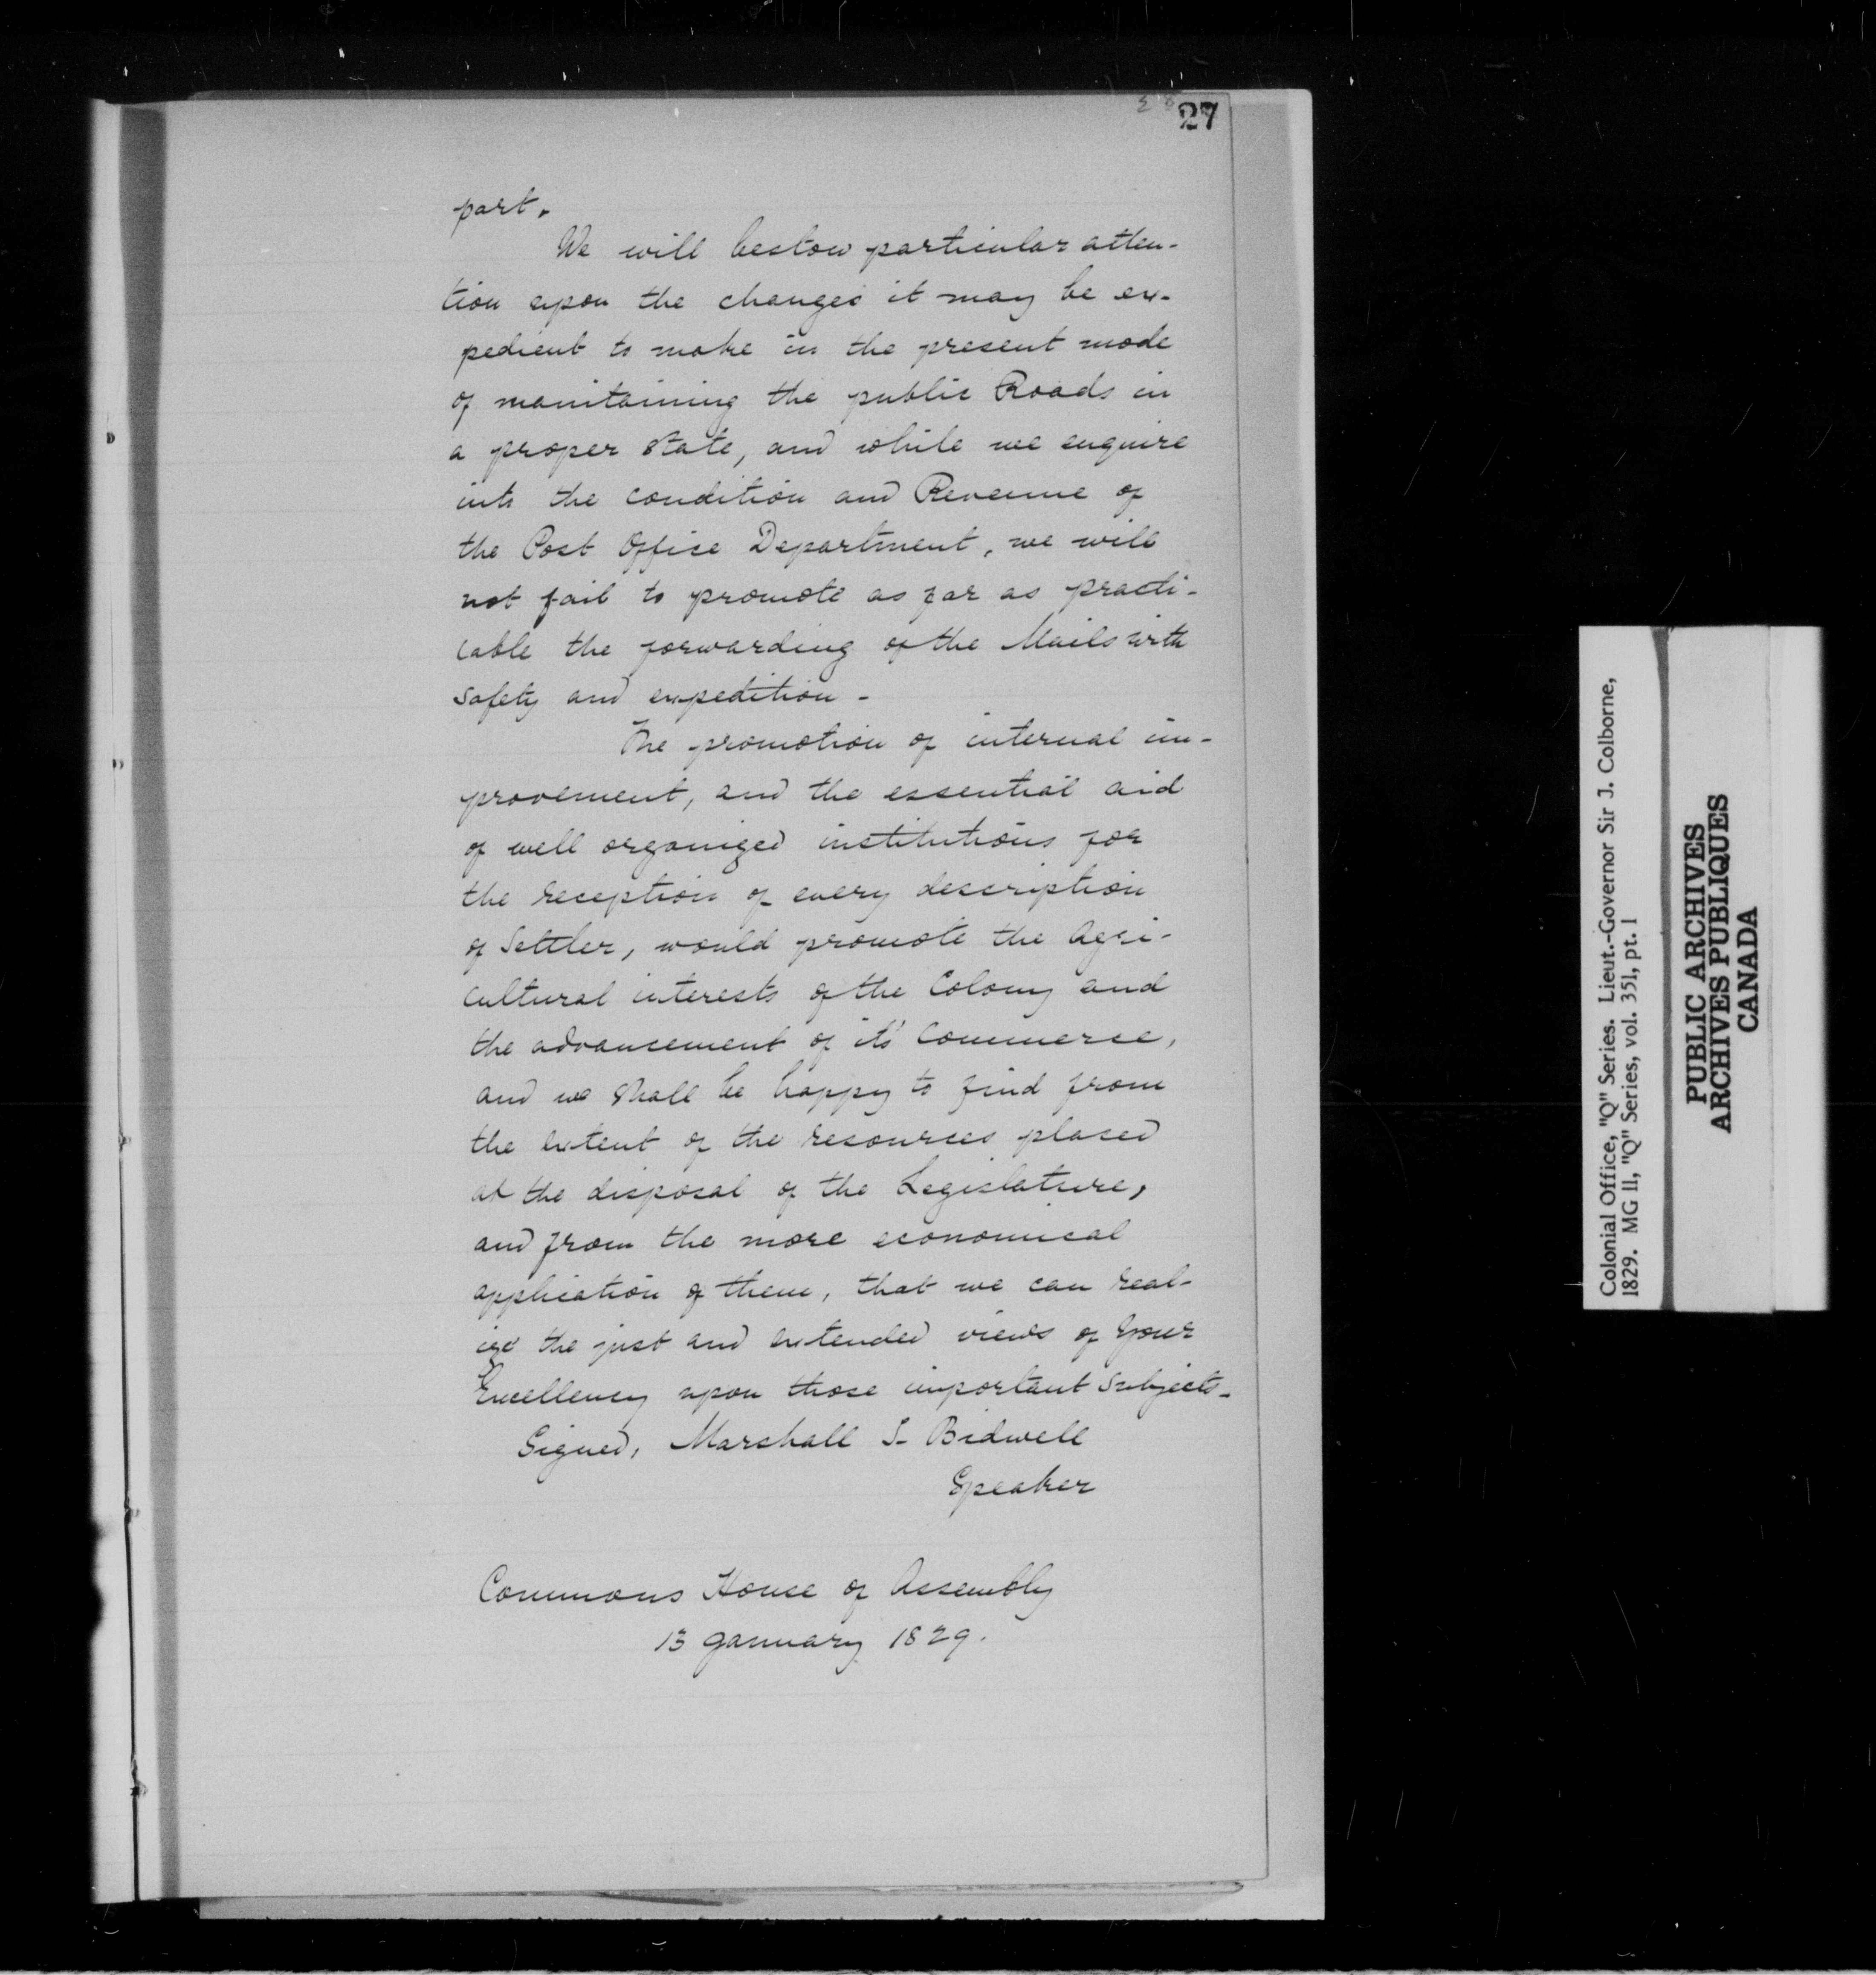 27
part.
We will bestow particular atten-
tion upon the changes it may be ex-
pedient to make in the present mode
of maintaining the public Roads in
a proper state, and while we enquire
into the condition and Revenue of
the Post Office Department, we will
not fail to promote as far as practi-
cable the forwarding of the Mails with
safety and expedition -
The promotion of internal im-
provement, and the essential aid
of well organized institutions for
the reception of every description
of Settler, would promote the Agri-
cultural interests of the Colony and
the advancement of it's Commerse,
and we shall be happy to find from
the extent of the resources plased
at the disposal of the Legislature,
and from the more economical
application of them, that we can real-
ize the just and extended views of Your
Excellency upon those important subjects-
Signed, Marshall S- Bidwell
Speaker
Commons House of Assembly
13 January 1829.
Colonial Office, "Q" Series. Lieut.-Governor Sir J. Colborne,
1829. MG 11, "Q" Series, vol. 351, pt. 1
PUBLIC ARCHIVES
ARCHIVES PUBLIQUES
CANADA